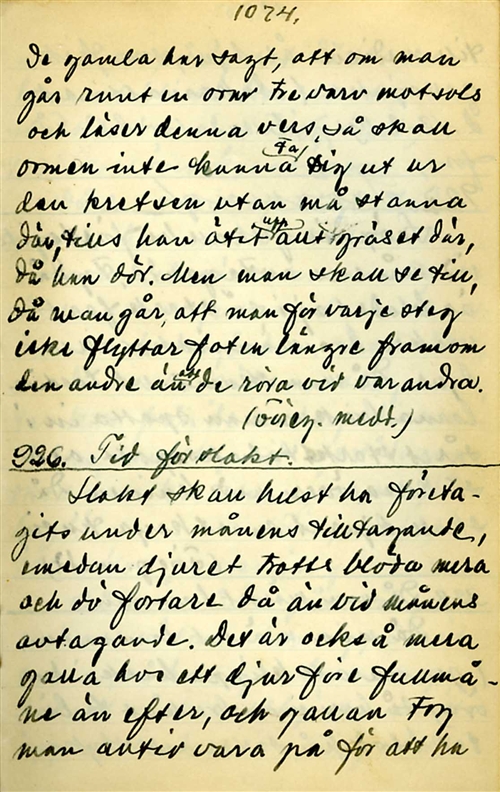 1074.
De gamla har sagt, att om man
går runt en orm tre varv motsols
och läser denna vers, så skall
ormen inte kunna ta sig ut ur
den kretsen utan må stanna
där, tills han ätit upp allt gräset där,
då han dör. Men man skall se till,
då man går, att man för varje steg
icke flyttar foten längre fram om
den andre än att de röra vid varandra.
medd.)
926. Tid för slakt.
Slakt skall helst ha företa-
gits under månens tilltagande,
emedan djuret trotts blöda mera
och dö fortare då än vid månens
avtagande. Det är också mera
galla hos ett djur före fullmå-
ne än efter, och gallan tog
man alltid vara på för att ha